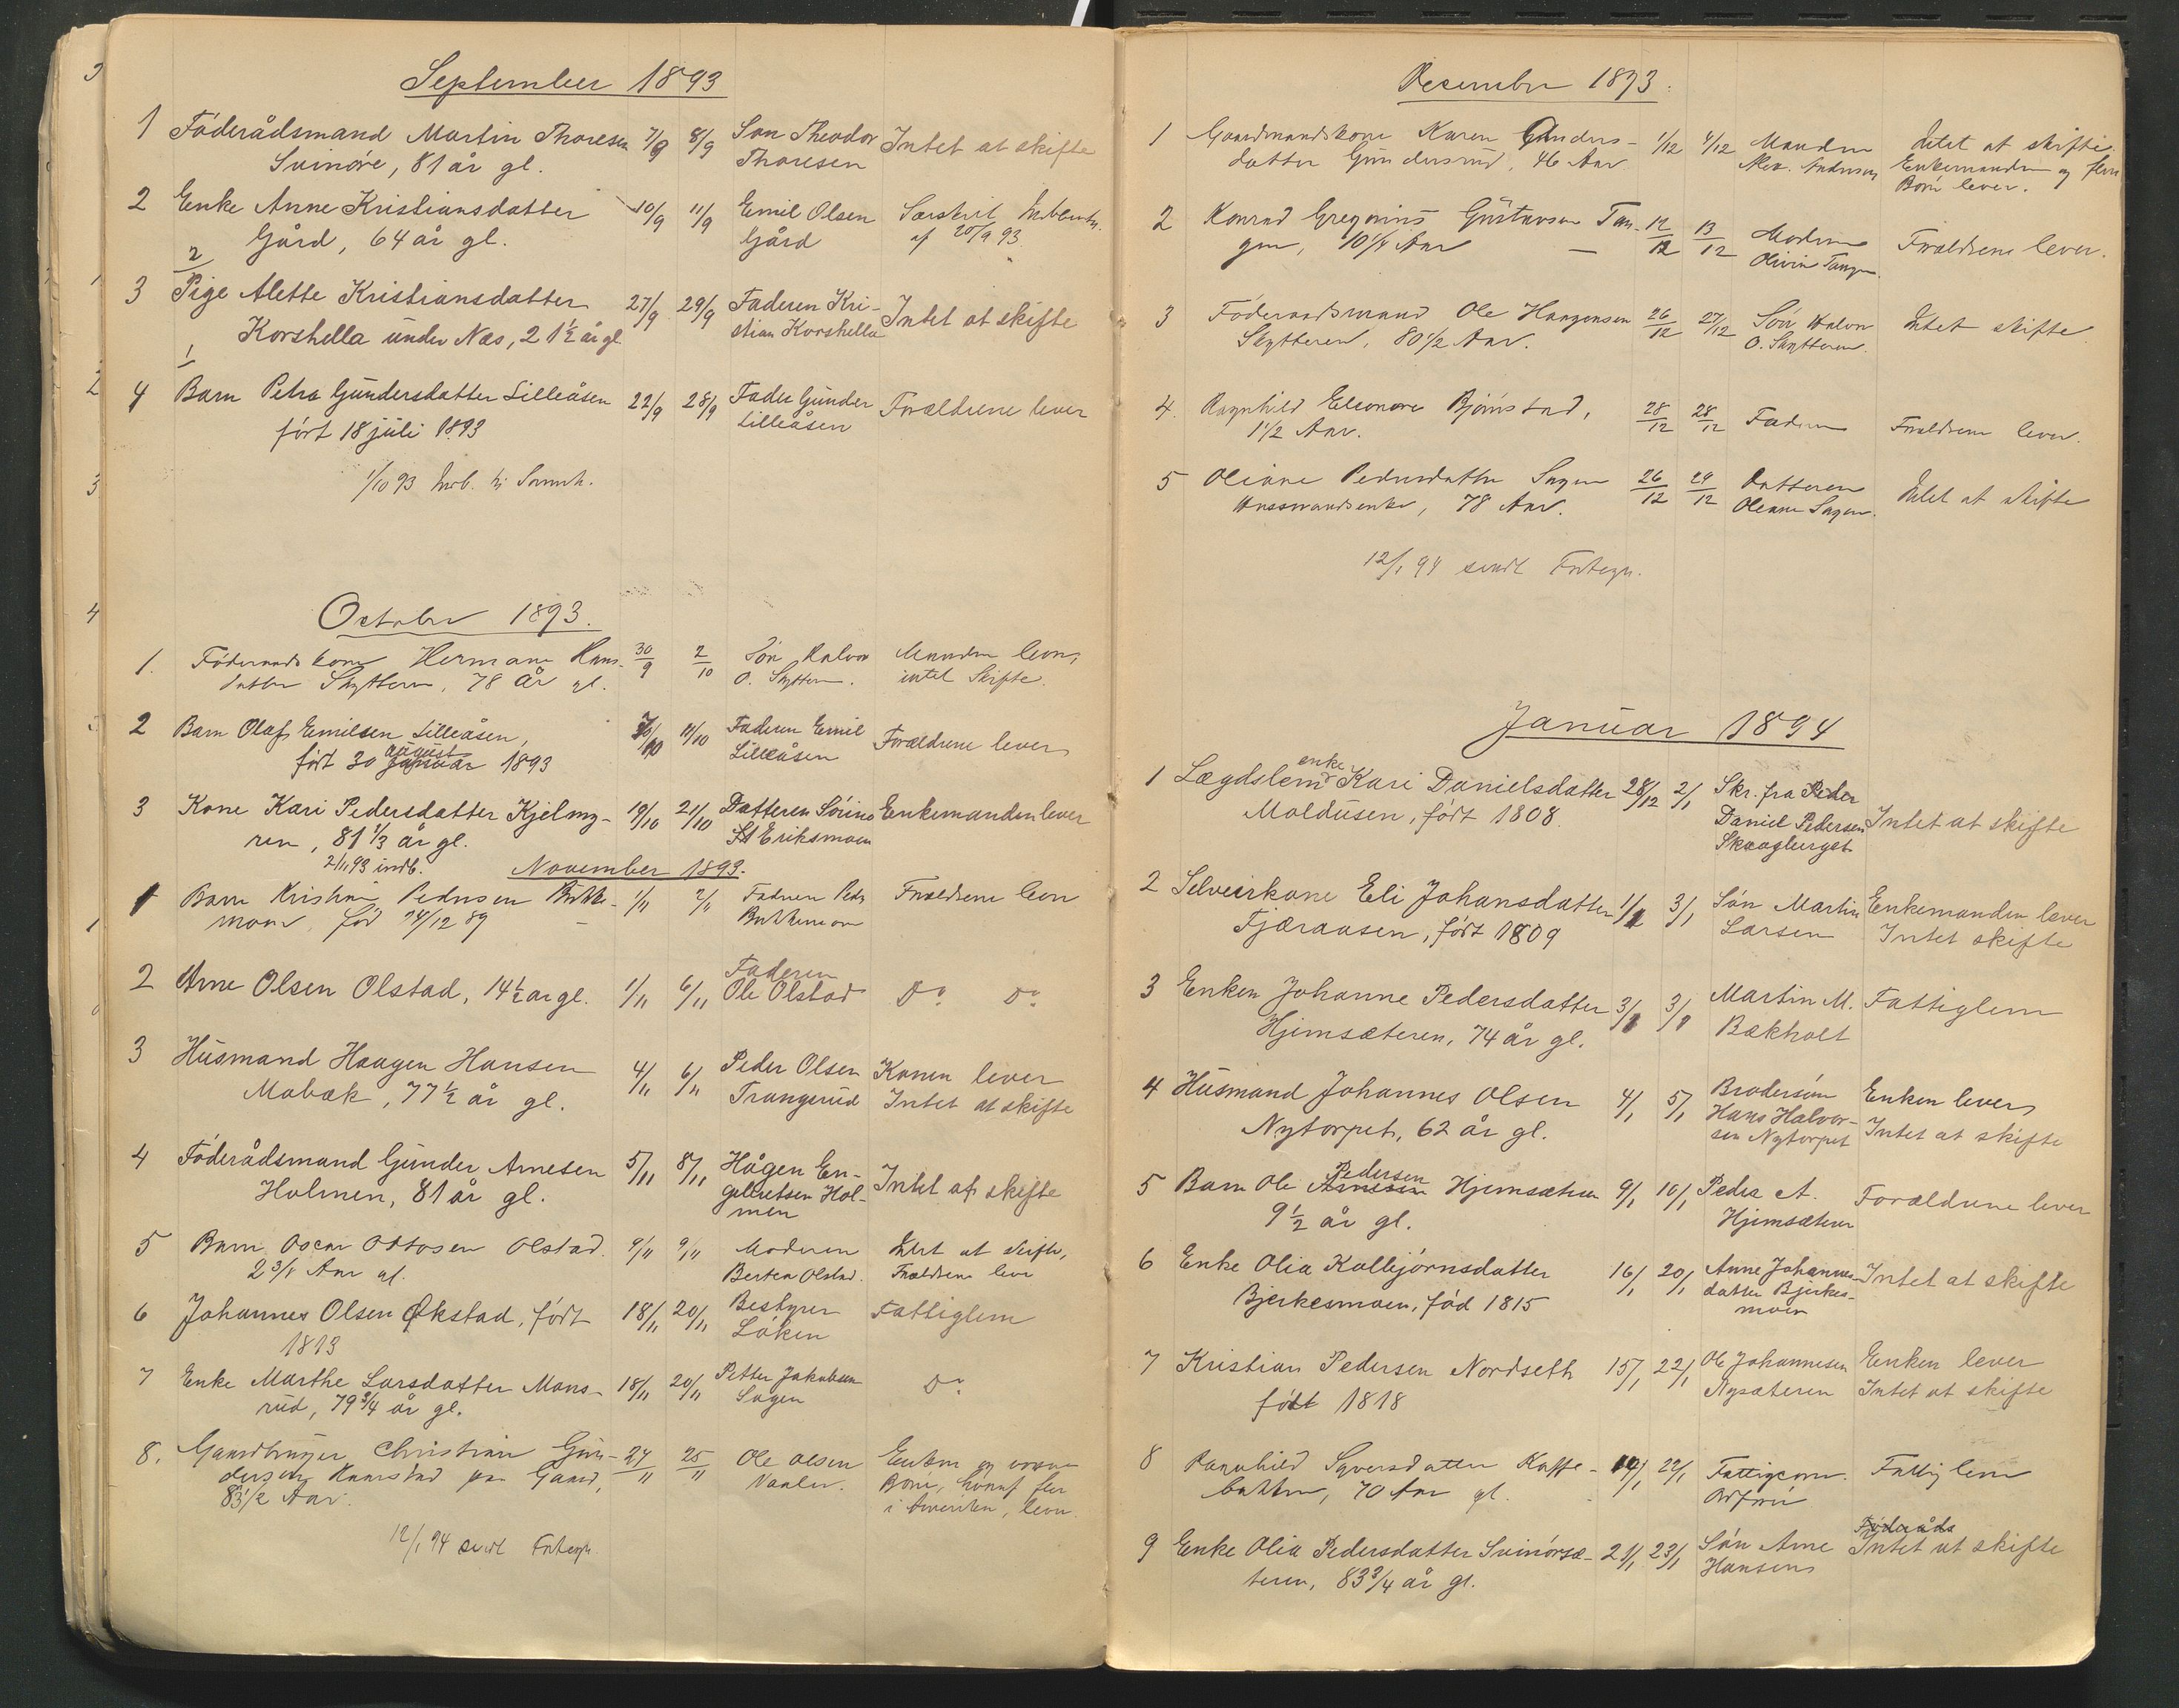 September 1893
1 Föderådsmand Martin Thoresen 7/9 8/9 Søn Theodor Intet at skifte
Svinöre, 81 år gl. Thoresen
2 Enke Anne Kristiansdatter 10/9 11/9 Emil Olsen Særskilt Indberetn.
Gård, 64 år gl. Gård af 20/9 93
2
3 Pige Alette Kristiansdatter 27/9 29/9 Faderen Kri- Intet at skifte
Korshella under Næs, 21½ år gl stian Korshella
1
4 Barn Petra Gundersdatter Lilleåsen 22/9 28/9 Fader Gunder Forældrene lever
født 18 juli 1893 Lilleåsen
1/10 93 Indb. til Sorensk.
October 1893.
1. Föderaadskone Hermane Hans- 30/9 2/10 Sön Halvor Manden lever,
datter Skytteren, 78 år gl. O. Skytteren. intet Skifte.
2 Barn Olaf Emilsen Lilleåsen, 7/10 11/10 Faderen Emil Forældrene lever
august
født 30 januar 1893 Lilleåsen
3 Kone Kari Pedersdatter Kjelmy- 19/10 21/10 Datteren Sörine Enkemanden lever
ren, 81⅓ år gl. St Eriksmoen
2/11 93 indb. November 1893.
1 Barn Kristian Pedersen Bukke- 1/11 2/11 Faderen Peder Forældrene lever
moen, født 24/12 89 Bukkemoen
2 Arne Olsen Olstad, 14½ år gl. 1/11 6/11 Faderen Do Do
Ole Olstad
3 Husmand Haagen Hansen 4/11 6/11 Peder Olsen Konen lever
Mobæk, 77½ år gl. Trangerud Intet at skifte
4 Föderådsmand Gunder Arnesen 5/11 8/11 Hågen En- Intet at skifte
Holmen, 81 år gl. gebretsen Hol-
men
5 Barn Oscar Ottosen Olstad. 9/11 9/11 Moderen Intet at skifte,
2 3/8 Aar gl. Bertea Olstad. Forældrene lever
6 Johannes Olsen Økstad, født 18/11 20/11 Bestyrer Fattiglem
1813 Löken
7 Enke Marthe Larsdatter Mons- 18/11 20/11 Petter Jakobsen Do
rud, 79¾ år gl. Sagen
8. Gaardbruger Christian Gun- 24/11 25/11 Ole Olsen Enken og voxne
dersen Haarstad paa Gaard, Vaaler. Börn, hvoraf flere
83½ Aar. i Amerika, lever.
12/1 94 sendt Fortegn.
December 1893.
1 Gaardmandskone Karen Gunders- 1/12 4/12 Manden Intet at skifte.
datter Gundersrud, 46 Aar Alex. Andersen Enkemanden og flere
Börn lever.
2 Konrad Gregorius Gustavsen Tan- 12/12 13/12 Moderen Forældrene lever.
gen, 10¼ Aar Olivia Tangen.
3 Föderaadsmand Ole Haagensen 26/12 27/12 Sön Halvor Intet skifte
Skytteren, 80½ Aar. O. Skytteren.
4. Ragnhild Eleonore Björnstad, 28/12 28/12 Faderen Forældrene lever.
1½ Aar.
5 Oliane Pedersdatter Sagen 26/12 29/12 Datteren Intet at skifte
Husmandsenke, 78 Aar. Oleane Sagen.
12/1 94 sendt Fortegn.
Januar 1894
enke
1 Lægdslem Kari Danielsdatter 28/12 2/1 Skr. fra Peder Intet at skifte
Moldusen, født 1808 Daniel Pedersen
Skaaglerget
2 Selveierkone Eli Johansdatter 1/1 3/1 Søn Martin Enkemanden lever
Fjæraasen, født 1809 Larsen Intet skifte
3 Enken Johanne Pedersdatter 3/1 3/1 Martin M. Fattiglem
Hjimsæteren, 74 år gl. Bækholt
4 Husmand Johannes Olsen 4/1 5/1 Brodersön Enken lever
Nytorpet, 62 år gl. Hans Halvor- Intet at skifte
sen Nytorpet
Pedersen
5 Barn Ole Arnesen Hjimsæteren 9/1 10/1 Peder A. Forældrene lever
9½ år gl. Hjimsæteren
6 Enke Olia Kolbjörnsdatter 16/1 20/1 Anne Johannes- Intet at skifte
Bjerkesmoen, fød 1815 datter Bjerkes-
moen
7 Kristian Pedersen Nordseth 15/1 22/1 Ole Johannesen Enken lever
født 1818 Nysæteren Intet at skifte
8 Ragnhild Syversdatter Kaffe- 14/1 22/1 Fattigcom. Fattiglem
bakken, 70 Aar gl. Ordförer
Föderåds
9 Enke Olia Pedersdatter Svinörsæ- 21/1 23/1 Søn Arne Intet at skifte
teren, 83¾ år gl. Hansen